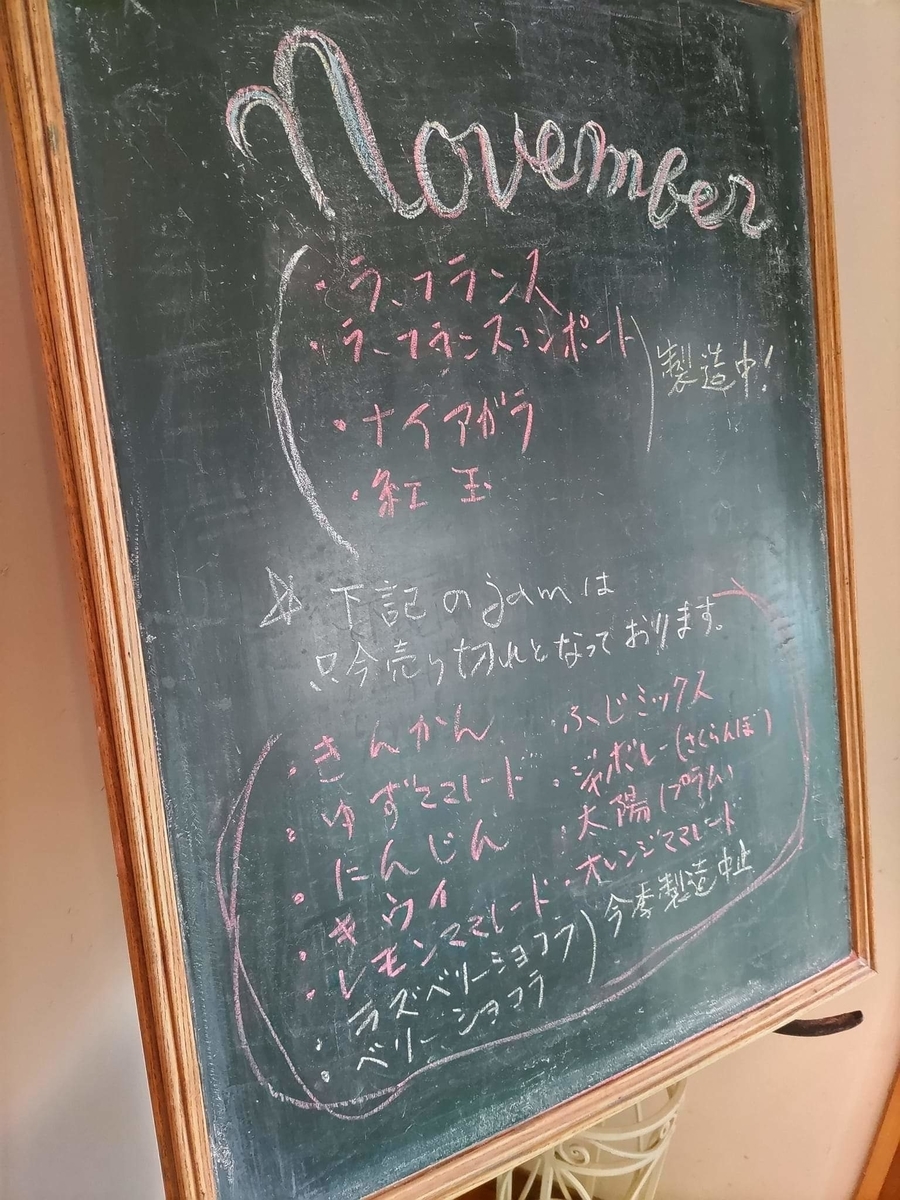 November
・ラ・フランス
・ラ・フランスコンポート
製造中!
・ナイアガラ
・紅玉
☆ 下記のjamは
只今売り切れとなっております。
・きんかん
・ゆずママレード
・にんじん
・キウイ
・レモンママレード
・ラズベリーショコラ
・ベリーショコラ
今季製造中止
・ふじミックス
・ジャボレー(さくらんぼ)
・太陽(プラム)
・オレンジママレード